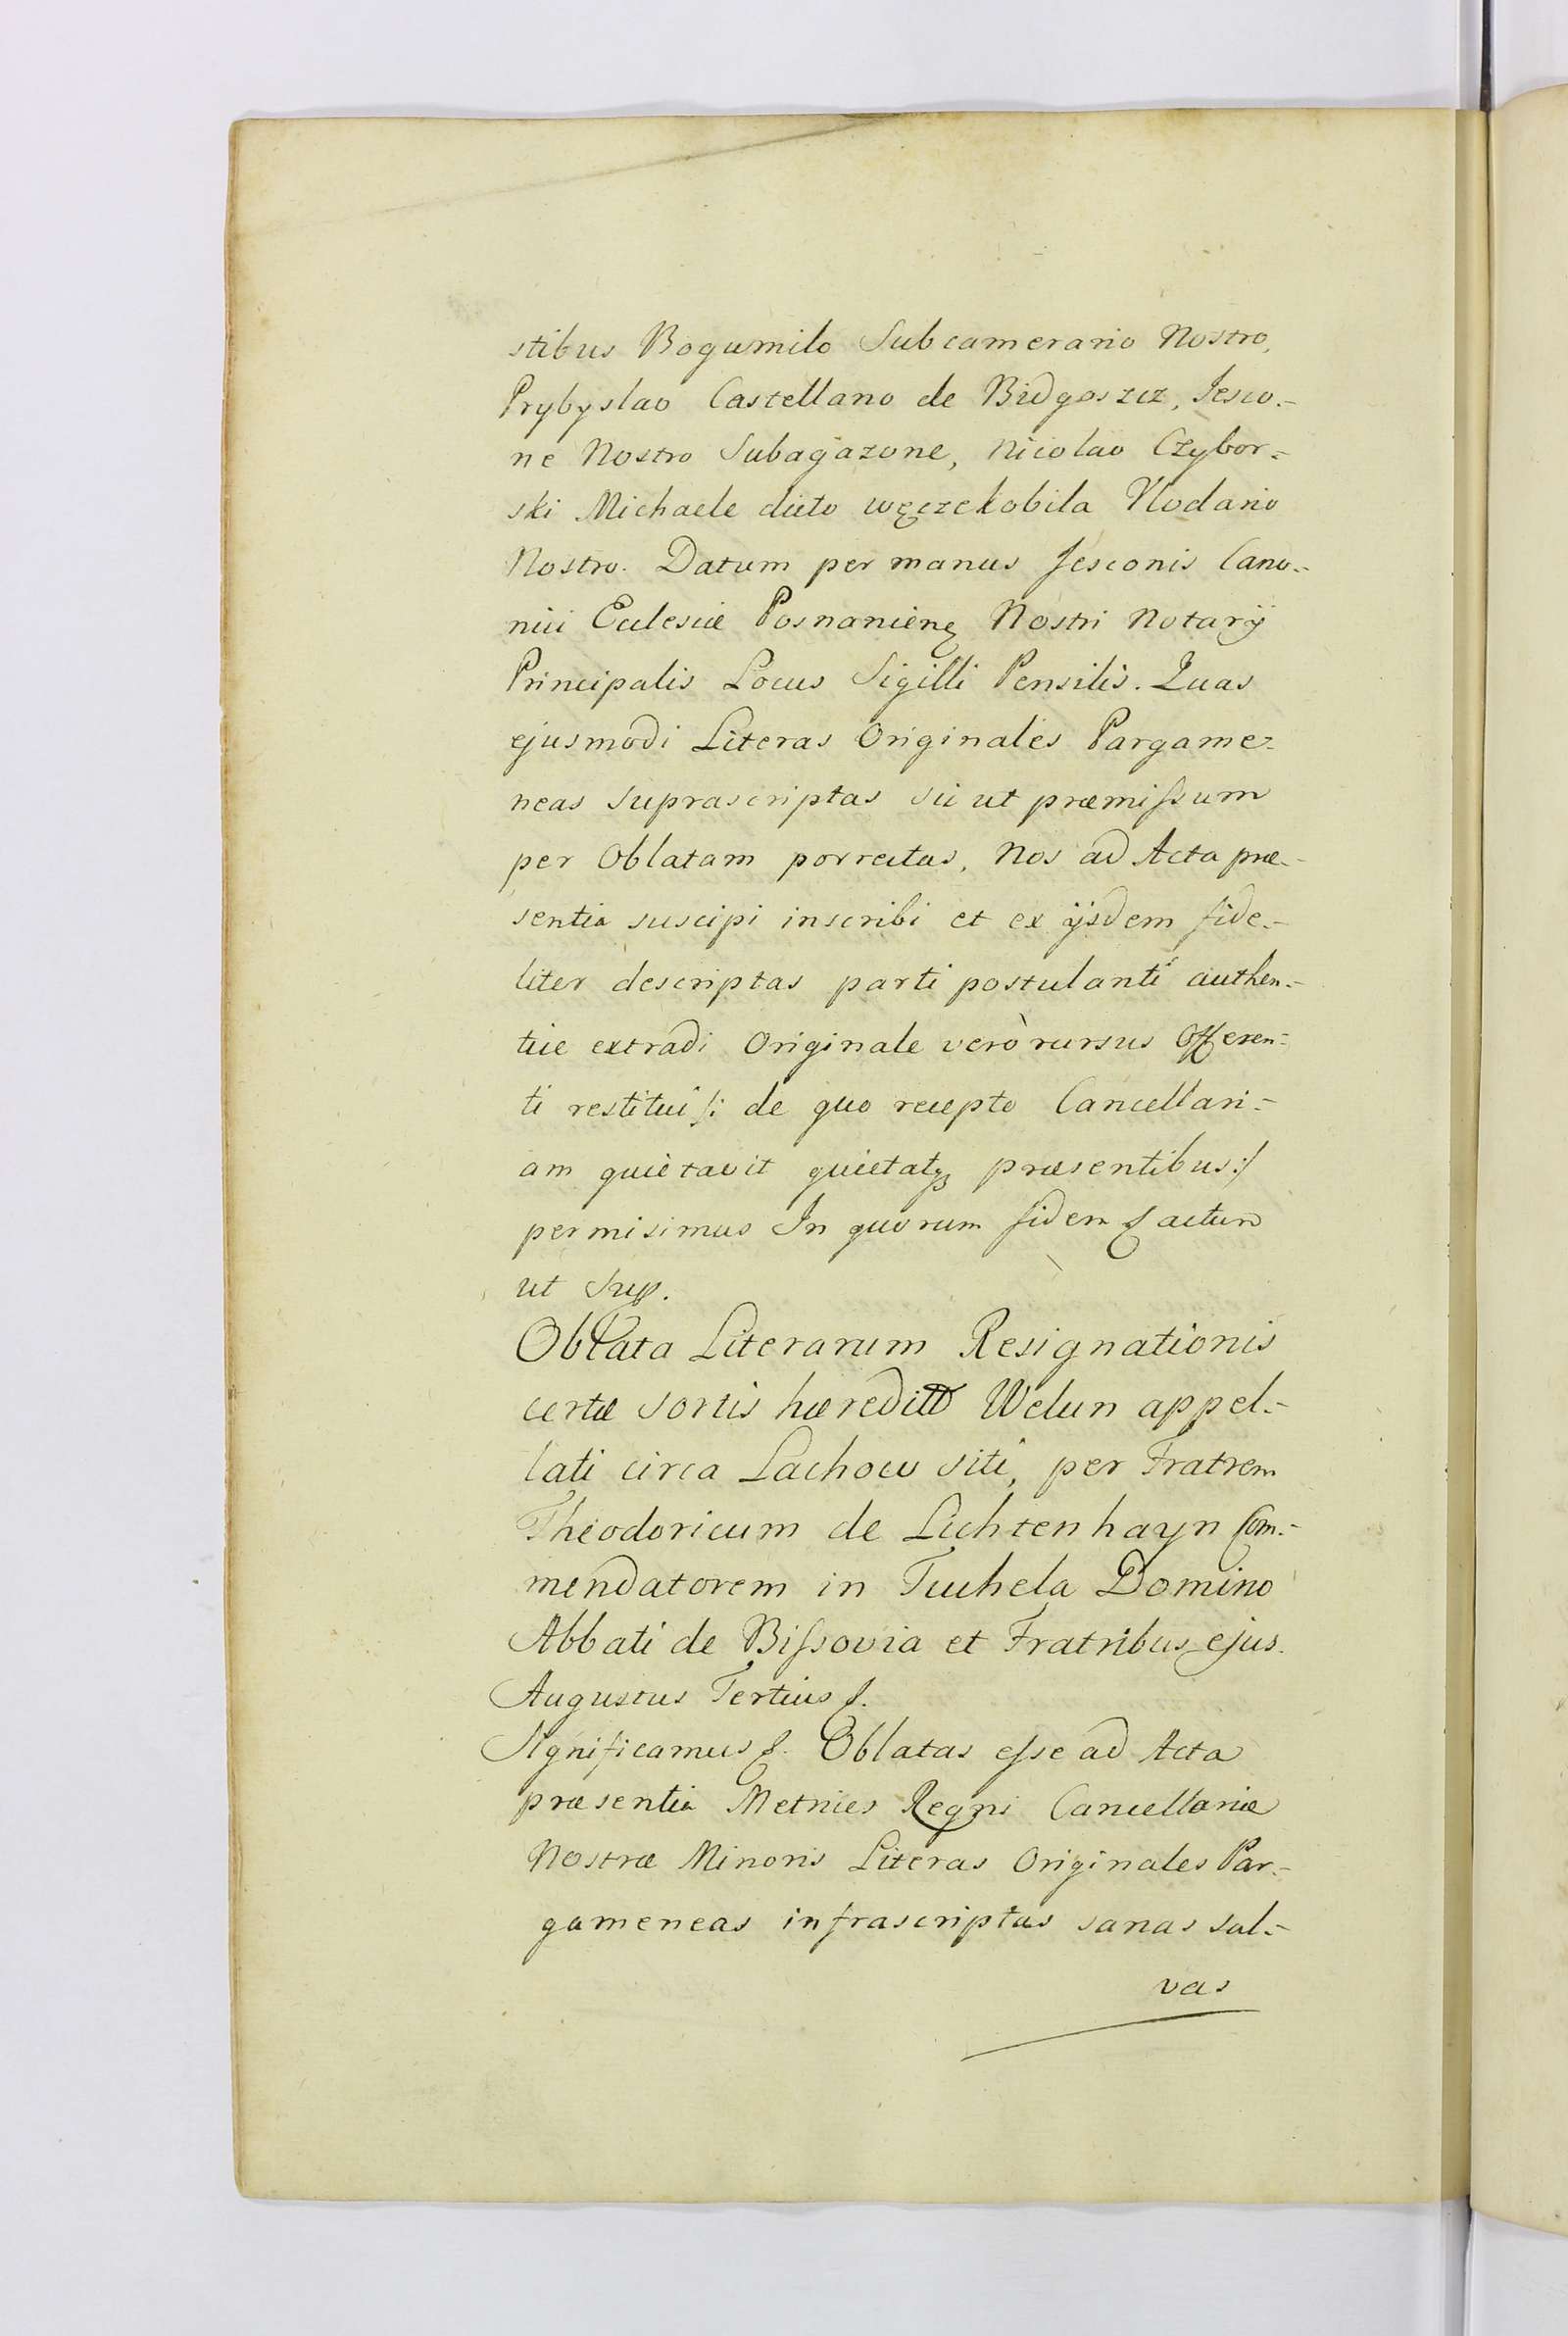 stibus Bogumilo Subcamerario Nostro,
Prybyslao Castellano de Bidgoszcz, Jesco.-
ne Nostro Subagazone, Nicolao Czybor-
ski Michaele dicto węczekobila Vlodario
Nostro. Datum per manus Jesconis Cano-
nici Ecclesiæ Posnanienę Nostri Notarÿ
Principalis Locus Sigilli Pensilis. Quas
ejusmodi Literas Originales Pargame-
neas suprascriptas sic ut præmissum
per Oblatam porrectas, Nos ad Acta præ-
sentia suscipi inscribi et ex ijsdem fide-
liter descriptas parti postulanti authen-
tice extradi Originale verò rursus Offeren-
ti restitui /: de quo recepto Cancellari-
am quietavit quietatqꝫ præsentibus :/
permisimus In quorum fidem &. actum
ut Sup.
Oblata Literarum Resignationis
certæ sortis hæreditt Welun appel-
lati circa Lachow siti, per Fratrem
Theodoricum de Lichtenhayn Com-
mendatorem in Tuchela Domino
Abbati de Bissovia et Fratribus ejus.
Augustus Tertius &.
Significamus &. Oblatas esse ad Acta
præsentia Metrices Regni Cancellariæ
Nostræ Minoris Literas Originales Par-
gameneas infrascriptas sanas sal-
vas